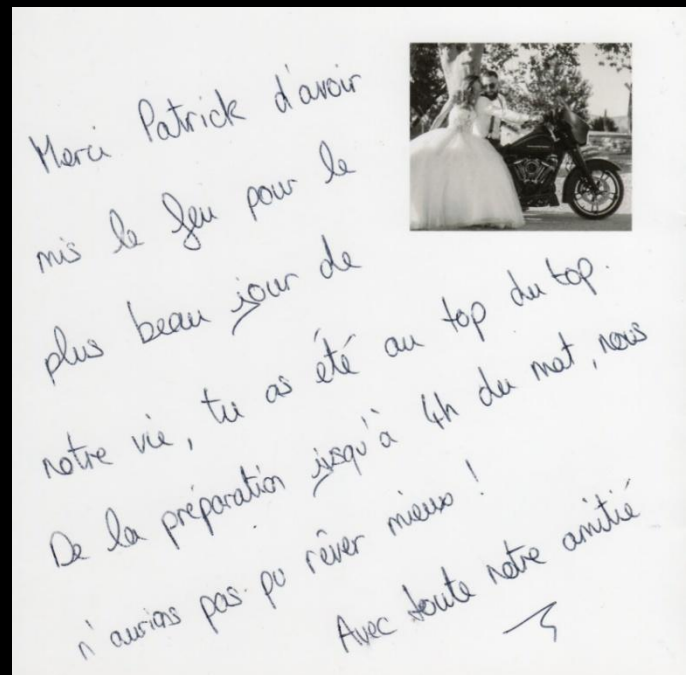 Merci Patrick d'avoir
mis le feu pour le
plus beau jour de
notre vie, tu as été au top du top.
De la préparation jusqu'à 4h du mat, nous
n'aurions pas pu rêver mieux !
Avec toute notre amitié